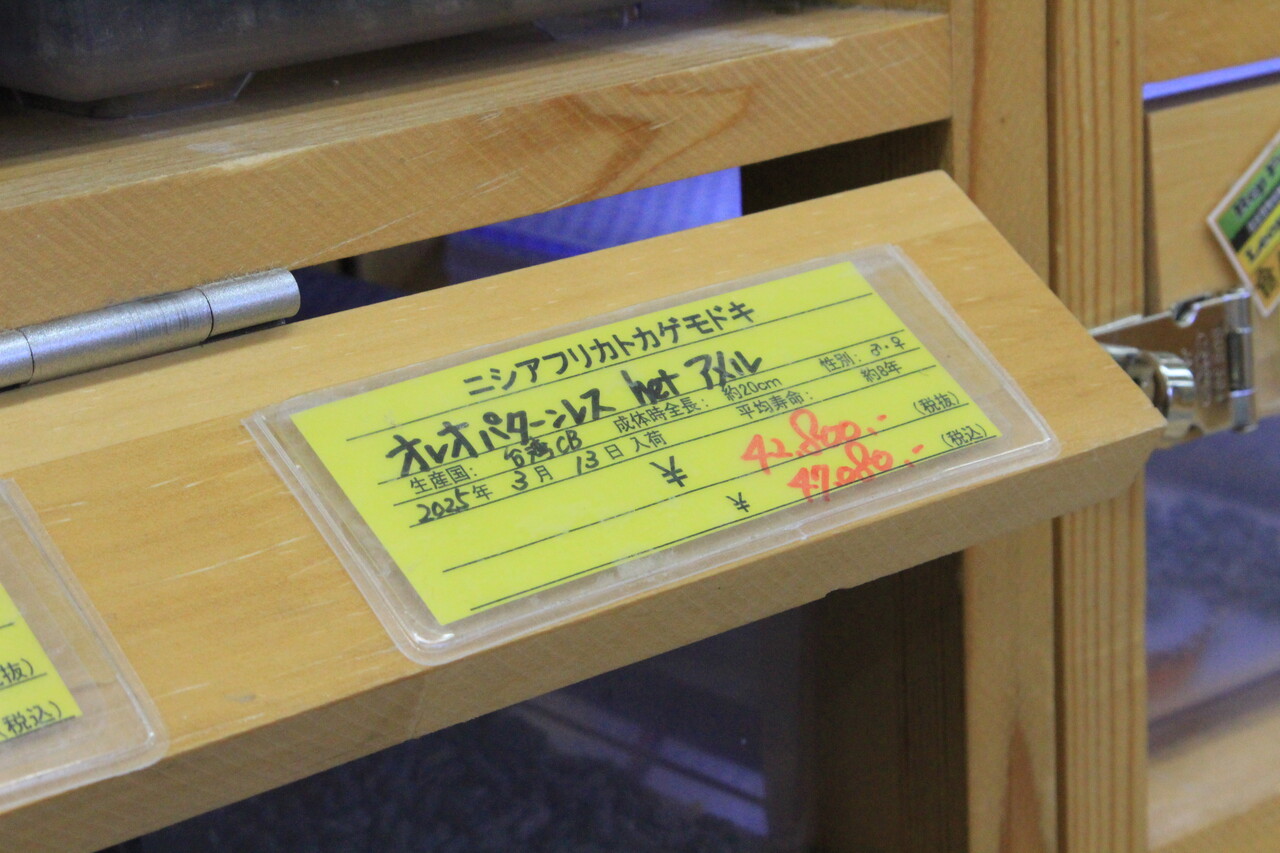 ニシアフリカトカゲモドキ
オレオパターンレス het アメル
生産国: 台湾CB 成体時全長: 約20cm 性別: ♂・♀
2025年 3月 13日 入荷 平均寿命: 約8年
¥ 42.800.- (税抜)
¥ 47.080.- (税込)
抜)
(税込)